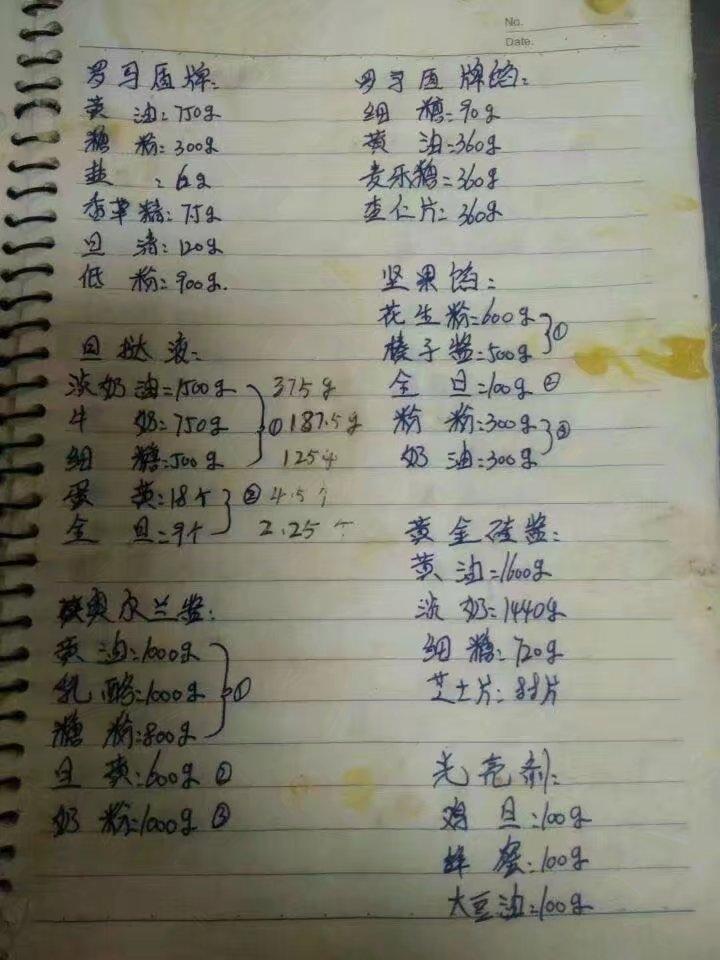 No.
Date.
罗马盾牌:
黄油:750g
糖粉:300g
盐:6g
香草精:75g
旦清:120g
低粉:900g.
旦挞液:
淡奶油=1500g 375g
牛奶:750g ① 187.5g
细糖:500g 125g
蛋黄:18个 ② 4.5个
全旦:9个 2.25个
奥尔兰酱:
黄油:1000g
乳酪:1000g ①
糖粉:800g
旦黄:600g ②
奶粉:1000g ③
罗马盾牌馅:
细糖:90g
黄油=360g
麦乐糖=360g
杏仁片:360g
坚果馅:
花生粉=600g ①
榛子酱=500g
全旦:100g ②
粉粉:300g ③
奶油:300g
黄金砖酱:
黄油=1600g
淡奶:1440g
细糖:720g
芝士片:88片
光亮剂:
鸡旦:100g
蜂蜜:100g
大豆油:100g